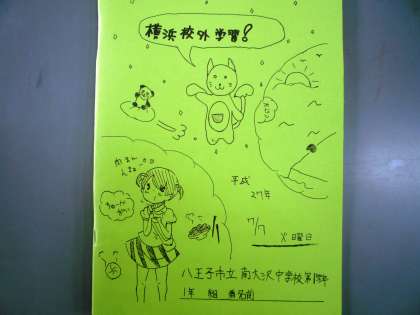 横浜校外学習!
平成
27年
7/7
火曜日
八王子市立 南大沢中学校第1学年
1年 組 番名前